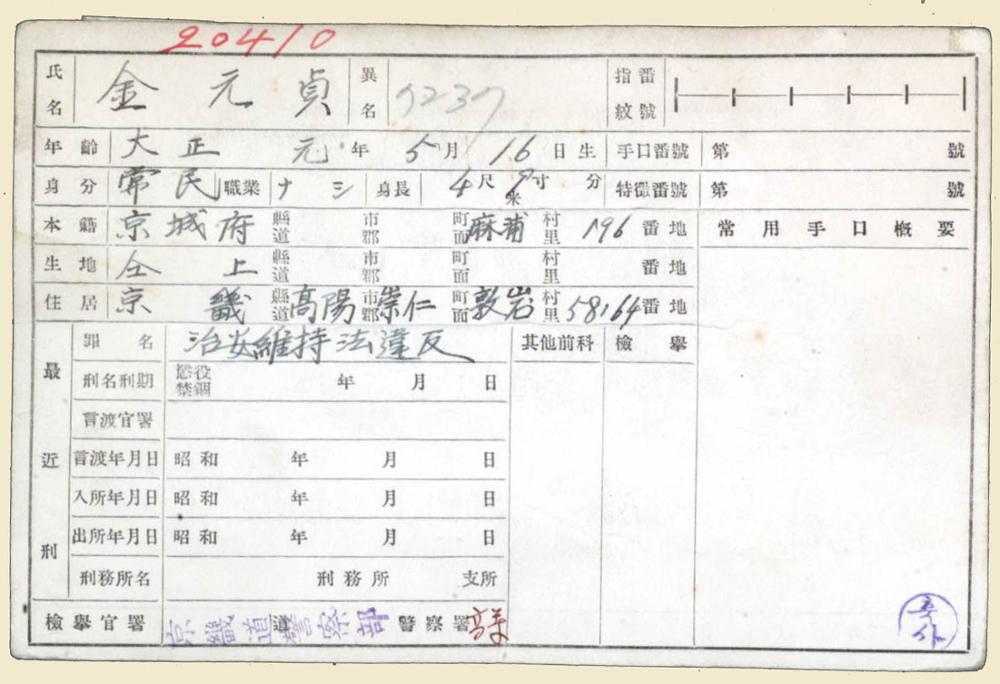 20410
氏名 金元貞 異名 指紋番號
年齡 大正元年5月16日生 手口番號 第 號
身分 常民 職業 ナシ 身長 4尺 寸 分 米 特徵番號 第 號
本籍 京城府 縣道 市郡 町面 麻浦 村里 196番地 常用手口概要
生地 仝上 縣道 市郡 町面 村里 番地
住居 京畿 縣道 高陽 市郡 崇仁 町面 敦岩 村里 58164番地
最近刑 罪名 治安維持法違反 其他前科 檢擧
刑名刑期 懲役禁錮 年 月 日
言渡官署
言渡年月日 昭和 年 月 日
入所年月日 昭和 年 月 日
出所年月日 昭和 年 月 日
刑務所名 刑務所 支所
檢擧官署 京畿道警察部 道 警察署